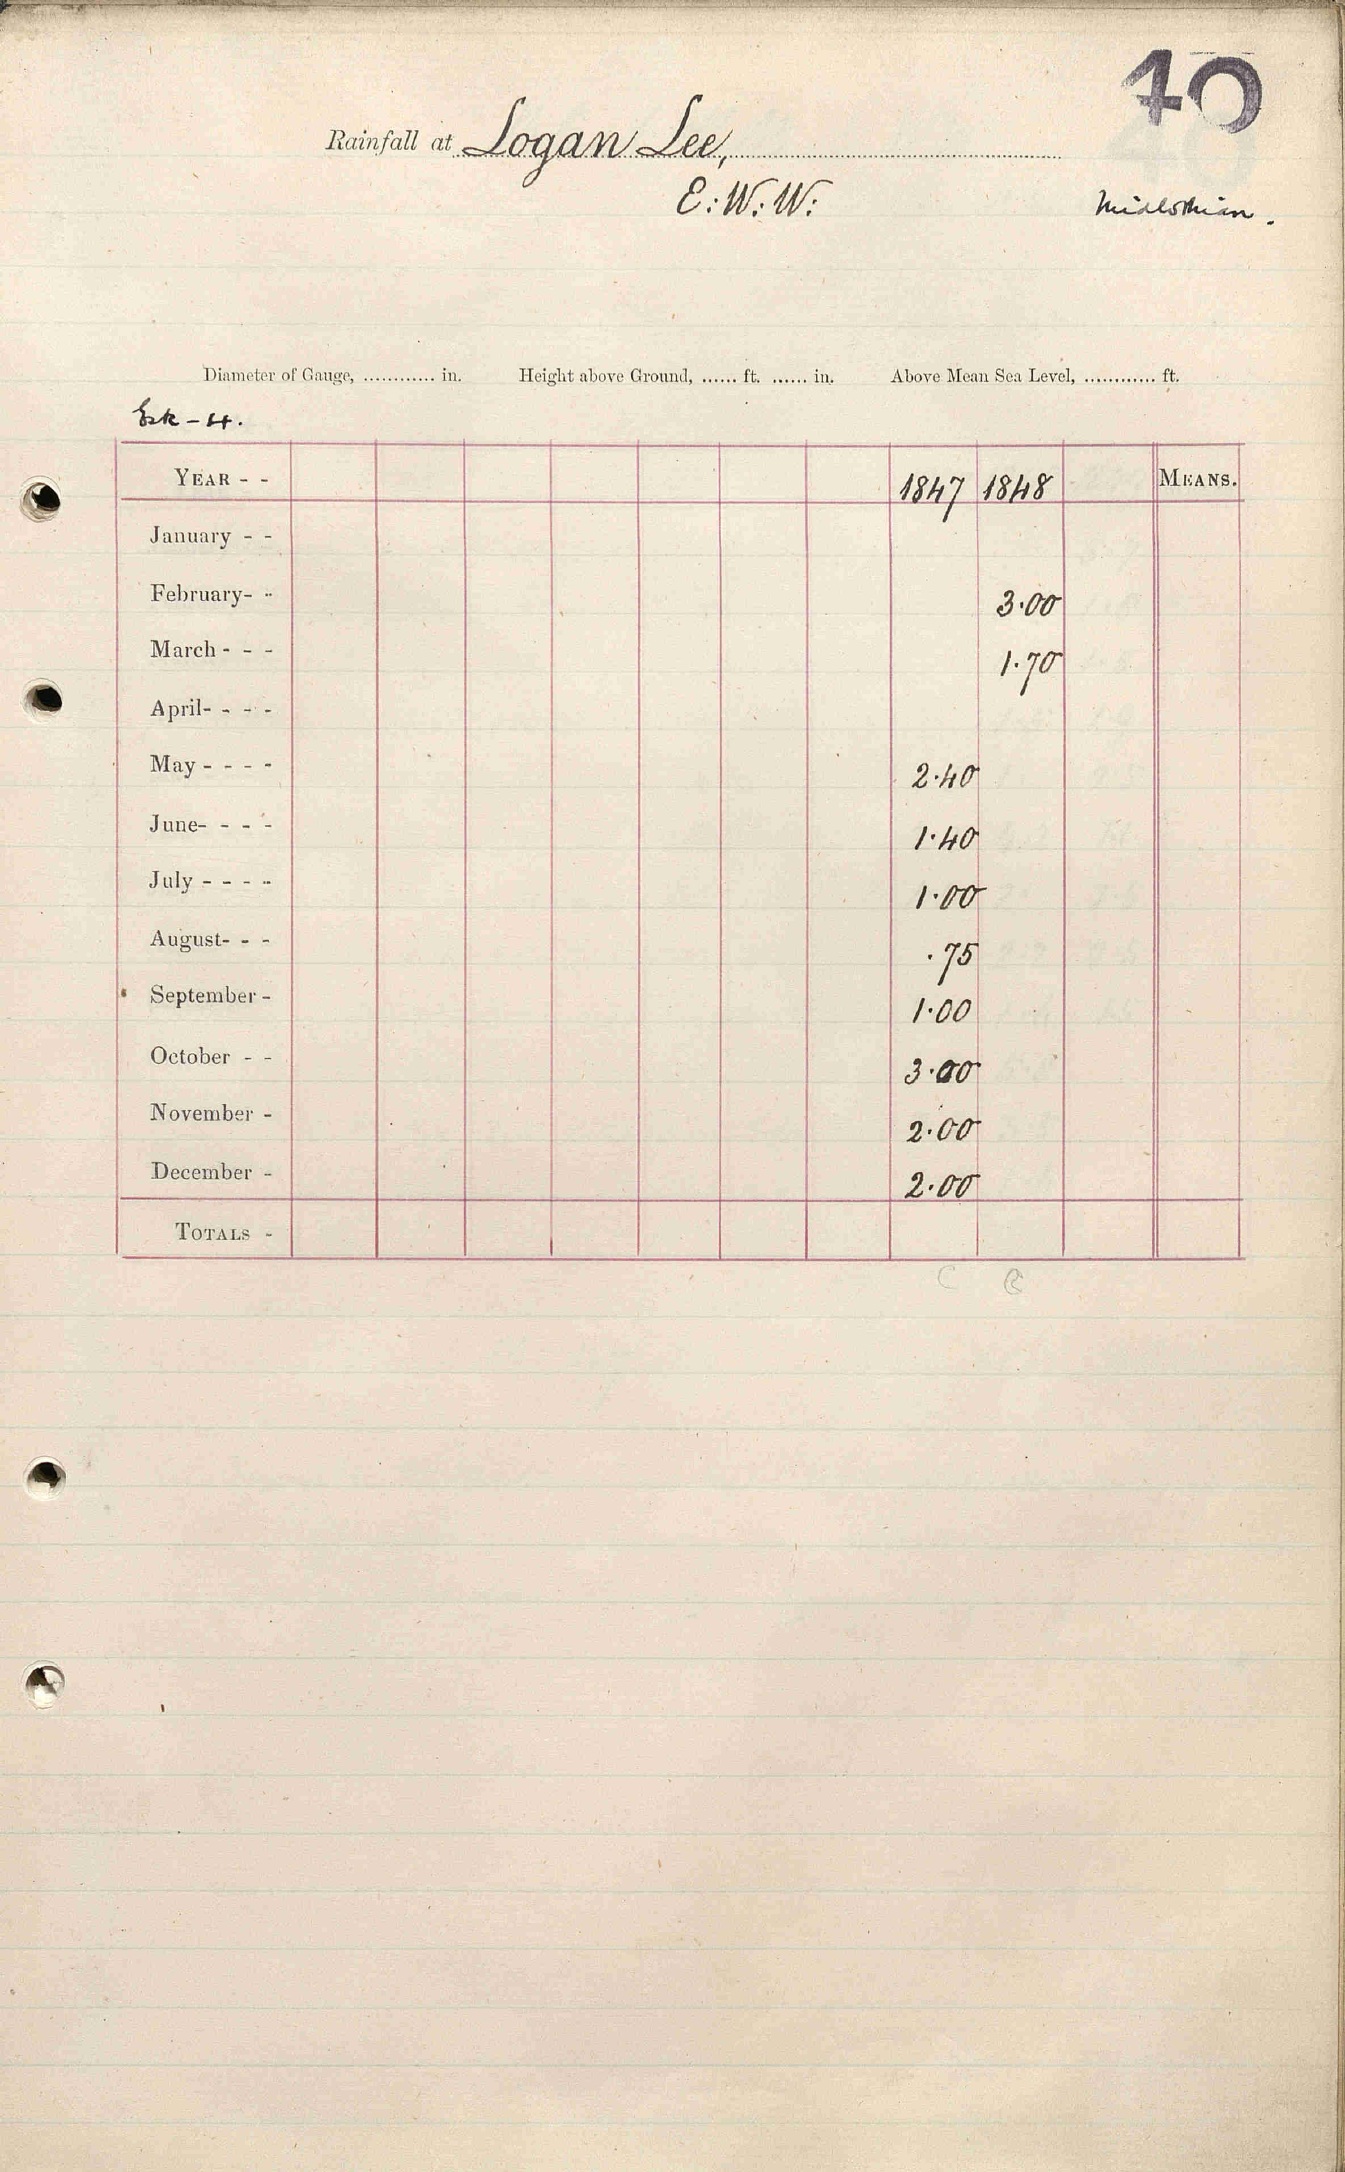 40
Rainfall at Logan Lee,
E: W: W:
Midlothian.
Diameter of Gauge, ............ in. Height above Ground, ...... ft. ...... in. Above Mean Sea Level, ............ ft.
Esk - 4.
YEAR - - 1847 1848 MEANS.
January - -
February- - 3·00
March - - - 1·70
April- - - -
May - - - - 2·40
June- - - - 1·40
July - - - - 1·00
August- - - ·75
September - 1·00
October - - 3·00
November - 2·00
December - 2·00
TOTALS -
C B